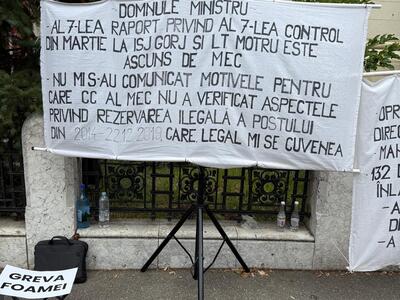 DOMNULE MINISTRU-
-AL 7-LEA RAPORT PRIVIND AL 7-LEA CONTROL
DIN MARTIE LA ISJ GORJ SI LT MOTRU ESTE
ASCUNS DE MEC
-NU MI S-AU COMUNICAT MOTIVELE PENTRU
CARE CC AL MEC NU A VERIFICAT ASPECTELE
PRIVIND REZERVAREA ILEGALĂ A POSTULUI
DIN 2014-22.12.2019, CARE, LEGAL MI SE CUVENEA
OPR
DIREC
MAH
132 D
ÎNLA
-A
-A
D
GREVA
FOAMEI